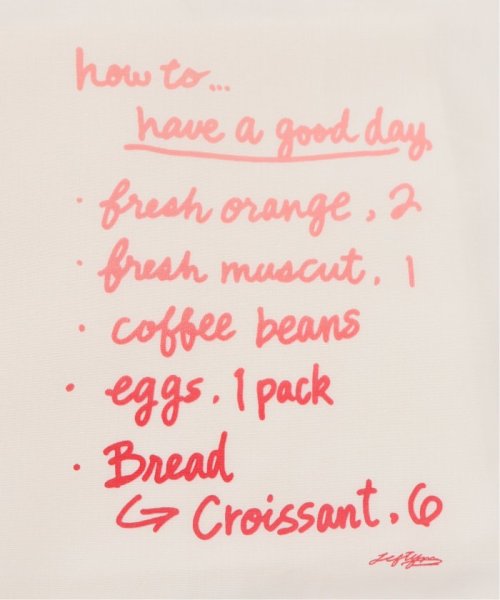 how to...
have a good day
• fresh orange, 2
• fresh muscut, 1
• coffee beans
• eggs, 1 pack
• Bread
↪ Croissant, 6